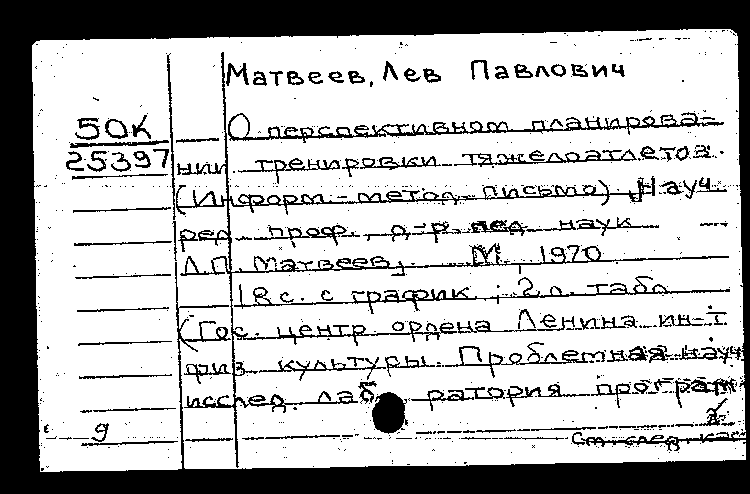 Матвеев, Лев Павлович
50К
25397
О перспективном планирова-
нии тренировки тяжелоатлетов.
(Информ.-метод. письмо). Науч.
ред. проф., д-р пед. наук
Л.П. Матвеев, М., 1970
18 с. с график.; 2 л. табл.
(Гос. центр. ордена Ленина ин-т
физ. культуры. Проблемная науч
исслед. лаборатория програм
g
См. след. кар